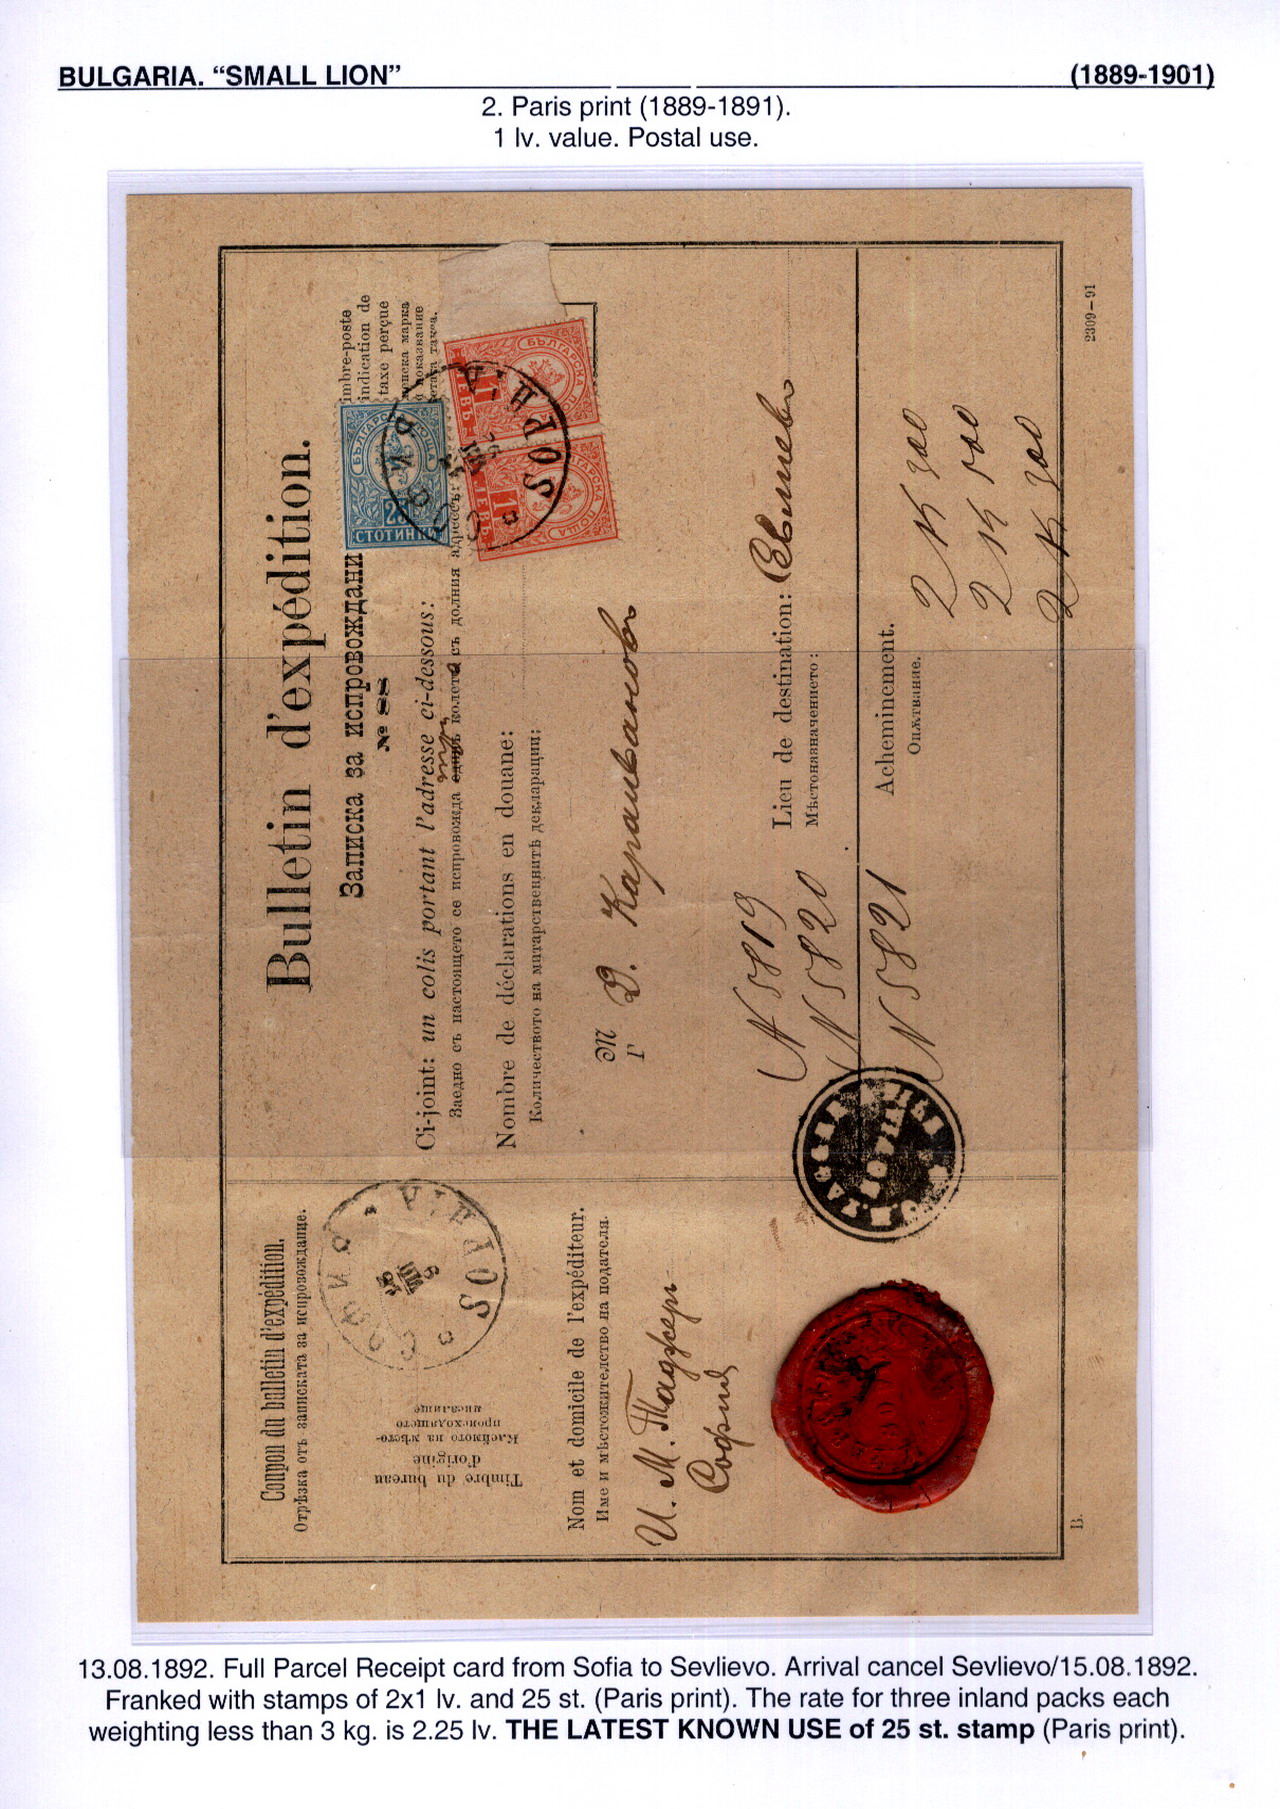 BULGARIA. “SMALL LION” (1889-1901)
2. Paris print (1889-1891).
1 lv. value. Postal use.
Bulletin d'expédition.
Записка за испровождани
№ 88
Ci-joint: un colis portant l'adresse ci-dessous:
три
Заедно съ настоящето се испровожда единъ колета съ долния адрессъ:
Nombre de déclarations en douane:
Количеството на митарственнитѣ декларации:
imbre-poste
indication de
taxe perçue
марка
показание
такса.
БЪЛГАРСКА ПОЩА
25
СТОТИНКИ
БЪЛГАРСКА ПОЩА
1 ЛЕВЪ
БЪЛГАРСКА ПОЩА
1 ЛЕВЪ
СОФИЯ SOPHIA
M
Г Д. Караивановъ
Lieu de destination: Севлиево
Мѣстоназначението:
N 5819
N 5820
N 5821
Acheminement.
Опѫтвание.
2 К 300
2 К 500
2 К 300
2309-91
Coupon du bulletin d'expédition.
Отрѣзка отъ записката за испровождание.
СОФИЯ SOPHIA
VIII
Timbre du bureau
d'origine
Клеймото на мѣсто-
происходящето
писалище
Nom et domicile de l'expéditeur.
Име и мѣстожителство на подателя.
И. М. Таджер
София
B.
13.08.1892. Full Parcel Receipt card from Sofia to Sevlievo. Arrival cancel Sevlievo/15.08.1892.
Franked with stamps of 2x1 lv. and 25 st. (Paris print). The rate for three inland packs each
weighting less than 3 kg. is 2.25 lv. THE LATEST KNOWN USE of 25 st. stamp (Paris print).